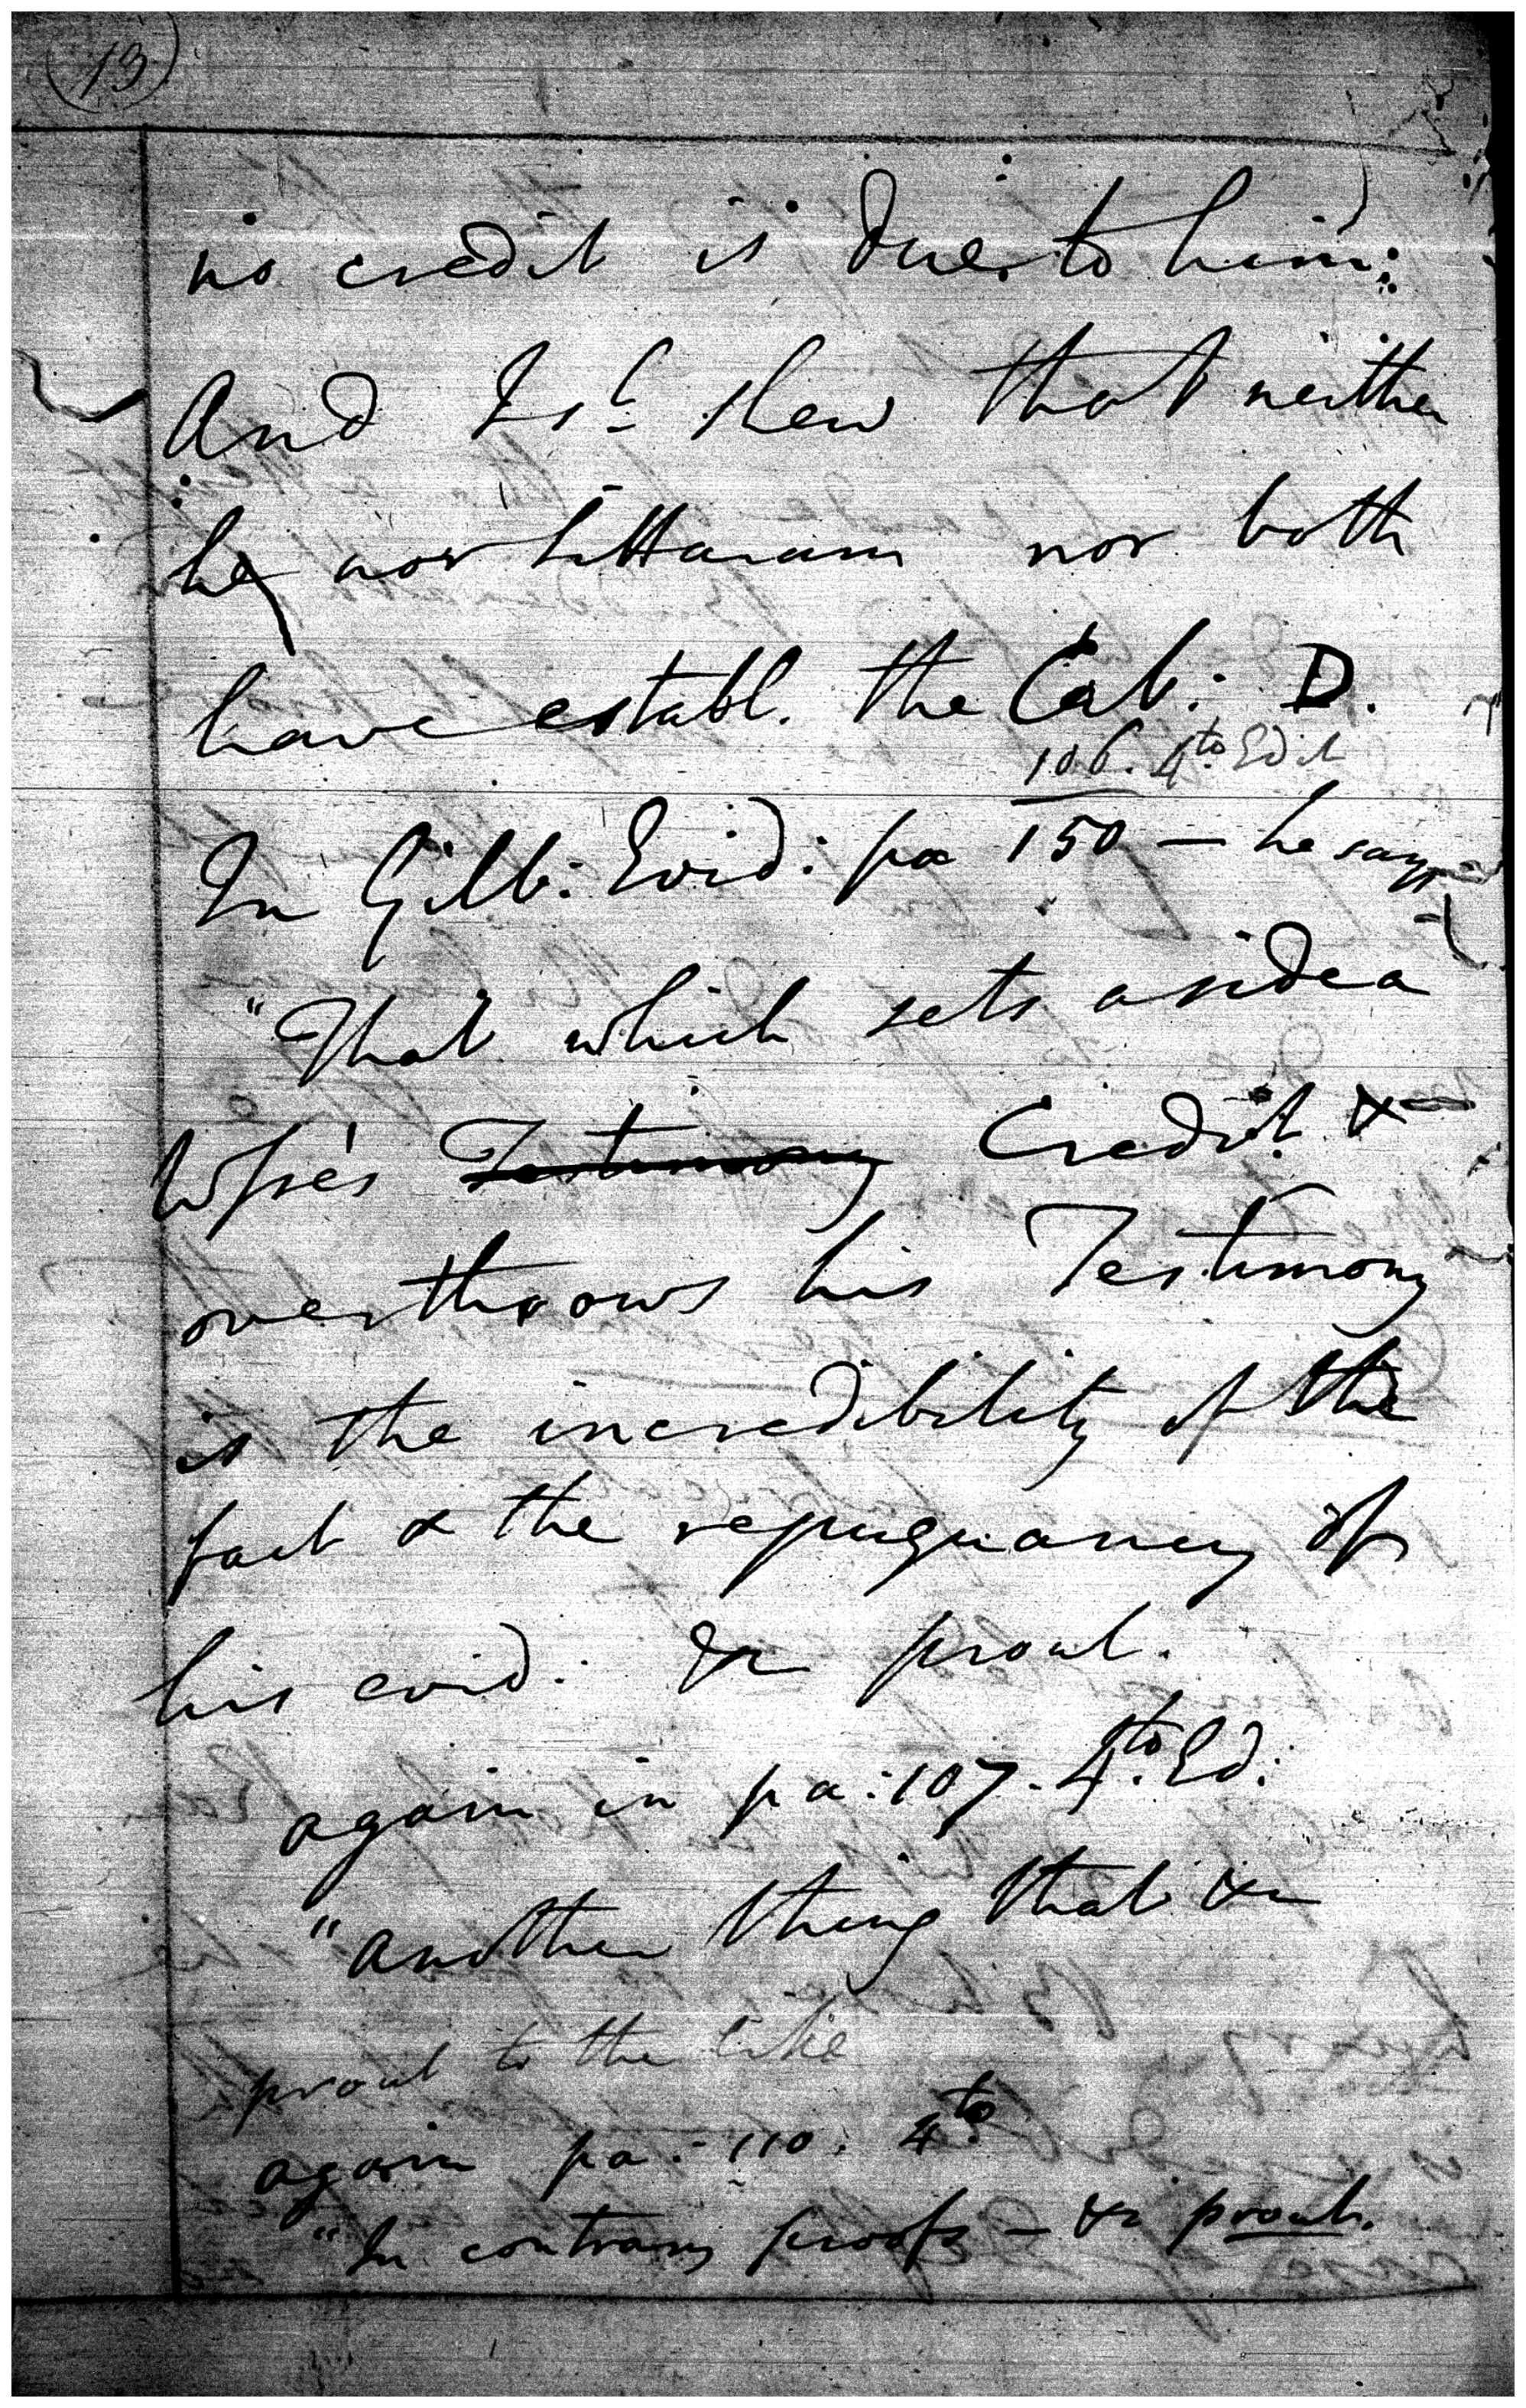 13
no credit is due to him:
And I sh.^d shew that neither
he nor Sittaram nor both
have establ. the Exb: D.
106. 4^to Edit
In Gilb: Evid: pa 150 — he says
"That which sets aside a
Wife's Testimony Credit &
overthrows his Testimony
is the incredibility of the
fact & the repugnancy of
his evid: &c prout.
again in pa: 107. 4^to. Ed:
"another thing that &c
prout to the like
again pa: 110. 4^to
"In contrary proofs — &c prout.